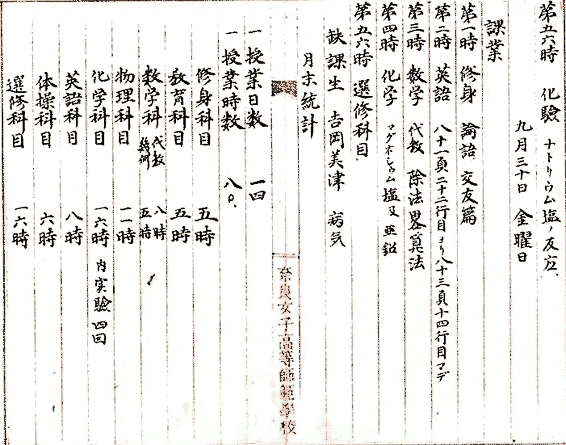 第五六時 化験 ナトリウム塩ノ反応
九月三十日 金曜日
課業
第一時 修身 論語 交友篇
第二時 英語 八十一頁二十二行目ヨリ八十三頁十四行目マデ
第三時 数学 代数 除法畧算法
第四時 化学 マグネシウム塩及亜鉛
第五六時 選修科目
缺課生 吉岡美津 病気
月末統計
奈良女子高等師範學校
一 授業日数 一四
一 授業時数 八〇
修身科目 五時
教育科目 五時
数学科 代数 八時
幾何 五時
物理科目 一一時
化学科目 一六時 内実驗四回
英語科目 八時
体操科目 六時
選修科目 一六時